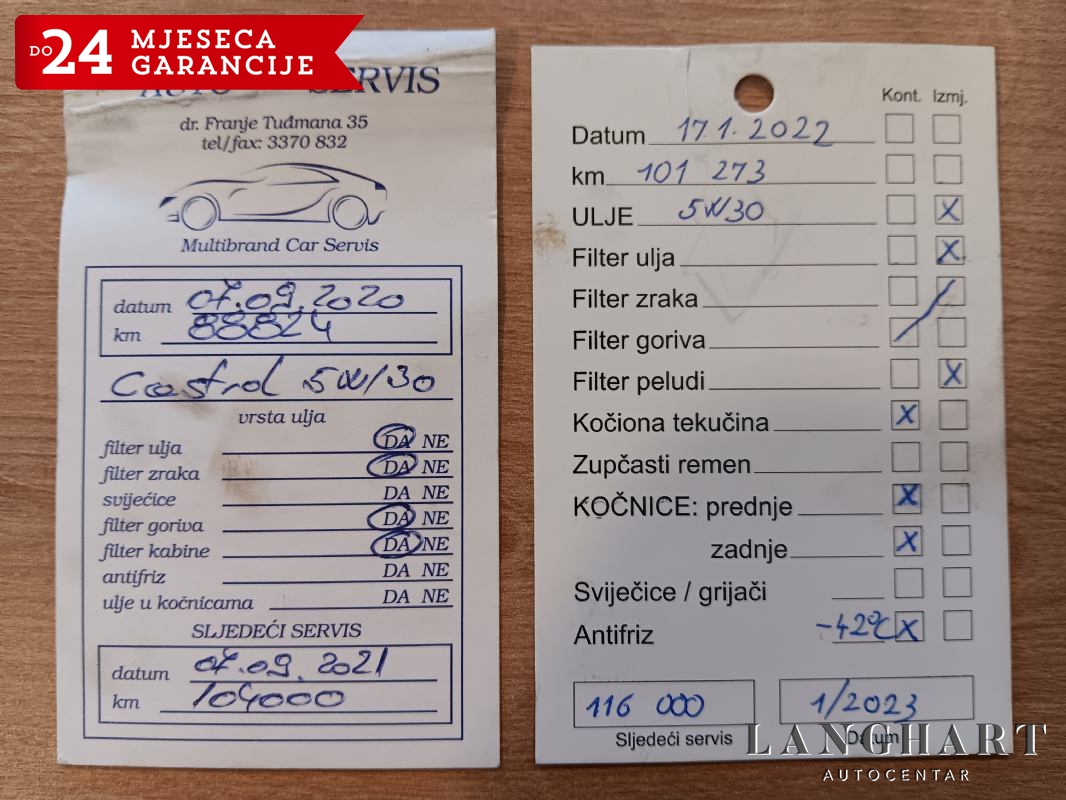 DO 24 MJESECA
GARANCIJE
AUTO SERVIS
dr. Franje Tuđmana 35
tel/fax: 3370 832
Multibrand Car Servis
datum 07.09.2020
km 88824
Castrol 5W/30
vrsta ulja
filter ulja DA NE
filter zraka DA NE
svijećice DA NE
filter goriva DA NE
filter kabine DA NE
antifriz DA NE
ulje u kočnicama DA NE
SLJEDEĆI SERVIS
datum 07.09.2021
km 104000
Kont. Izmj.
Datum 17.1.2022
km 101 273
ULJE 5W/30 X
Filter ulja X
Filter zraka
Filter goriva
Filter peludi X
Kočiona tekučina X
Zupčasti remen
KOČNICE: prednje X
zadnje X
Sviječice / grijači
Antifriz -42°C X
116 000 1/2023
Sljedeći servis Datum
LANGHART
AUTOCENTAR